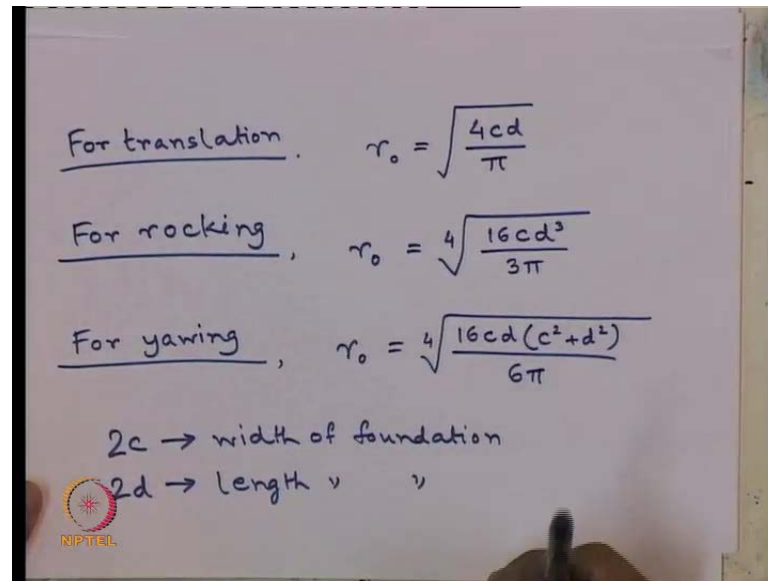 For translation. r₀ = √(4cd/π)
For rocking, r₀ = ⁴√(16cd³/3π)
For yawing, r₀ = ⁴√(16cd(c²+d²)/6π)
2c → width of foundation
2d → length " "
NPTEL